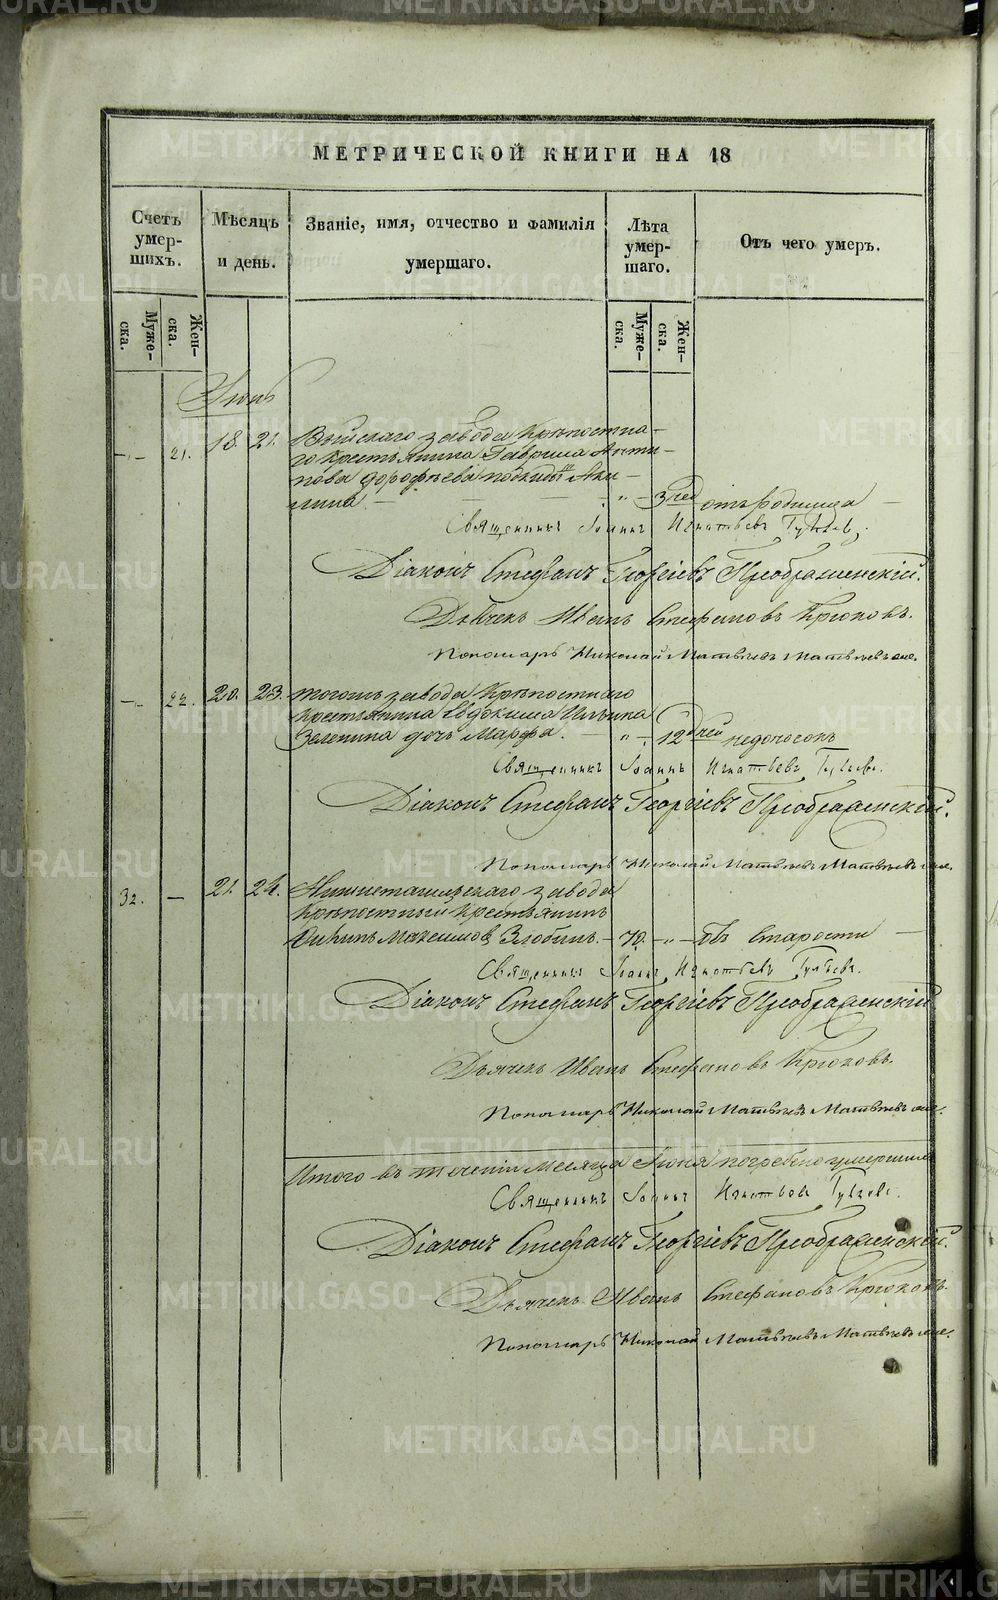 МЕТРИЧЕСКОЙ КНИГИ НА 18
Счетъ умер-шихъ.
Мѣсяцъ и день.
Званіе, имя, отчество и фамилія умершаго.
Лѣта умер-шаго.
Отъ чего умеръ.
Муже-ска.
Жен-ска.
Муже-ска.
Жен-ска.
Іюнь
— 21. 18. 21. Выйскаго завода Крѣпостна-
го крестьянина Гавріила Анти-
пова Дорофѣева
„ 3 отъ родимца
Священникъ Іоаннъ Игнатьевъ
Діаконъ Стефанъ Георгіевъ Преображенскій.
Дьячекъ Иванъ Стефановъ Крюковъ.
Пономарь Николай Матвѣевъ
— 22. 20. 23. тогожъ завода Крѣпостнаго
крестьянина Евдокима Ильина
Зеленина дочь Марфа. — „ — 12 дней недоносокъ
Священникъ Іоаннъ Игнатьевъ
Діаконъ Стефанъ Георгіевъ Преображенскій.
Пономарь Николай Матвѣевъ
32. — 21. 24. Нижнетагильскаго завода
Крѣпостный Крестьянинъ
Максимовъ Злобинъ. — 70. — „ — отъ Старости —
Священникъ Іоаннъ Игнатьевъ
Діаконъ Стефанъ Георгіевъ Преображенскій
Дьячекъ Иванъ Стефановъ Крюковъ.
Пономарь Николай Матвѣевъ
Итого въ теченіи месяца Іюня погребено умершихъ
Священникъ Іоаннъ Игнатьевъ
Діаконъ Стефанъ Георгіевъ Преображенскій.
Дьячекъ Иванъ Стефановъ Крюковъ.
Пономарь Николай Матвѣевъ
METRIKI.GASO-URAL.RU